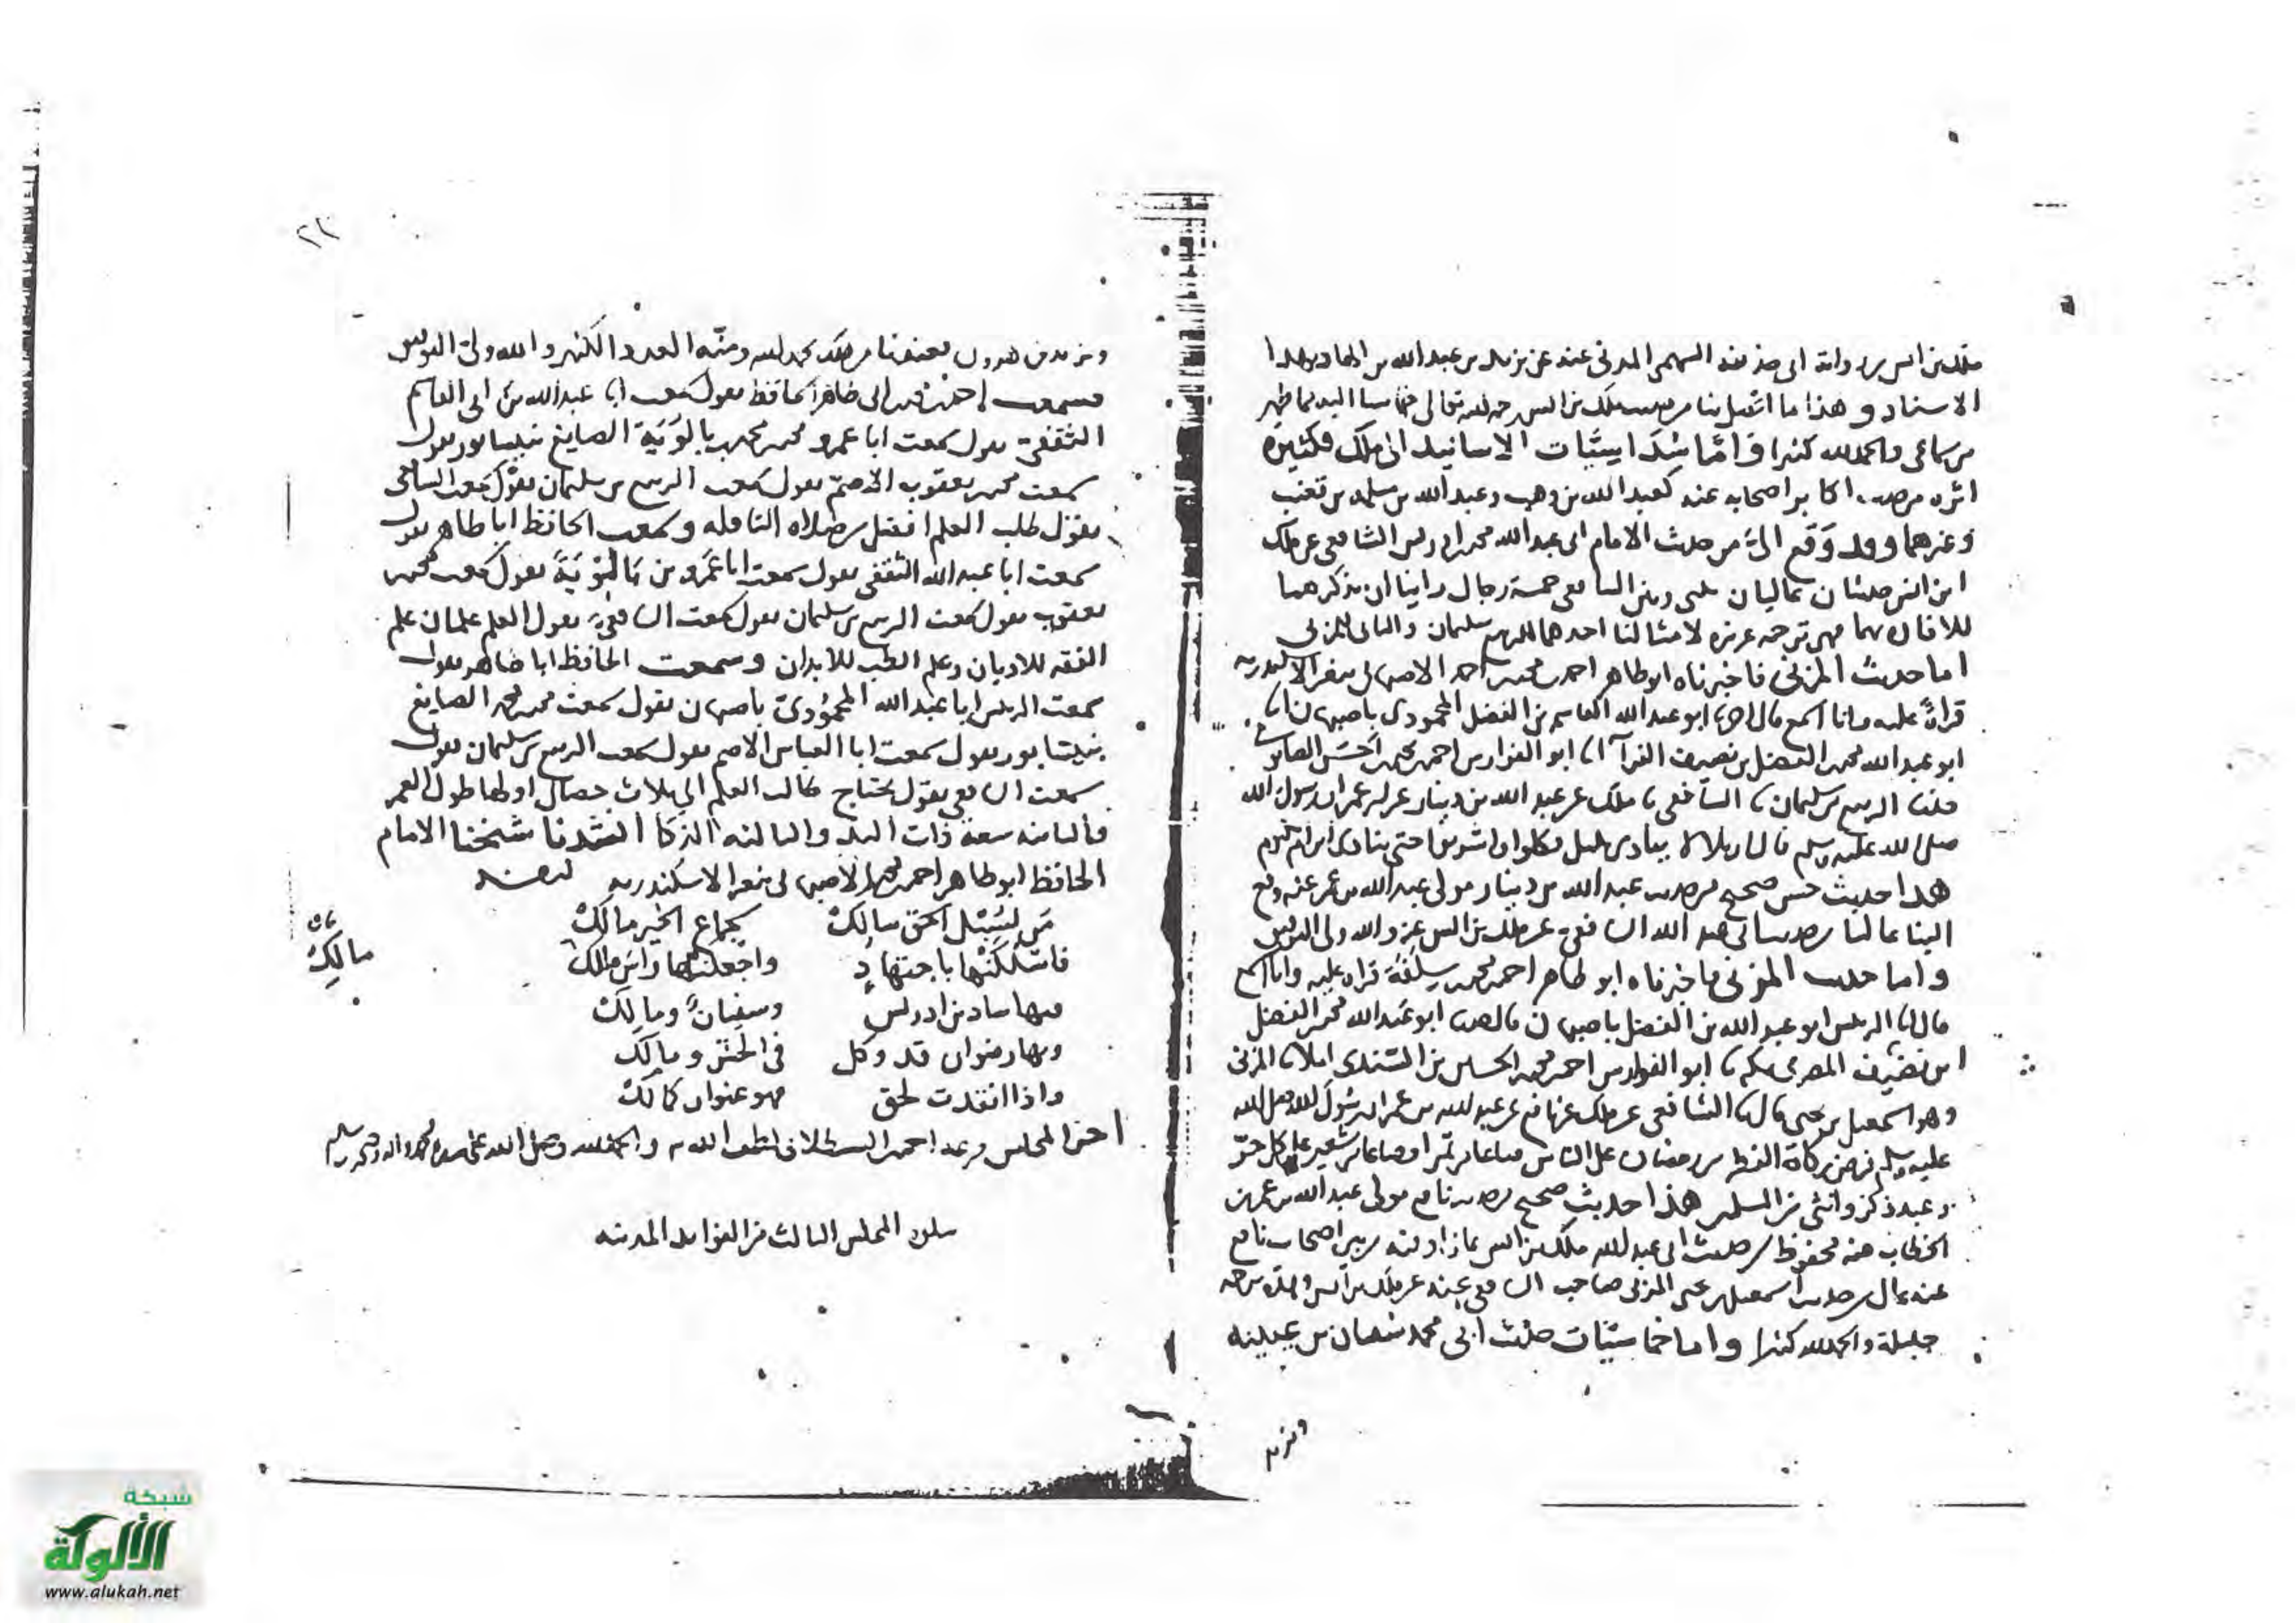 ملك بن انس برواية ابي حذافة السهمي المدني عنه عن يزيد بن عبد الله بن الهاد بهذا
الاسناد وهذا ما اتصل بنا من حديث ملك بن انس رحمه الله تعالى خماسيا اليه مما ظهر
من سماعي والحمد لله كثيرا واما سداسيات الاسانيد الى ملك فكثيرة
اثره من حديث اكابر اصحابه عنه كعبد الله بن وهب وعبد الله بن مسلمه بن قعنب
وغيرهما وقد وقع الي من حديث الامام ابي عبد الله محمد بن ادريس الشافعي عن ملك
ابن انس حديثان عاليان بيني وبين الشافعي خمسة رجال راينا ان نذكرهما
للافادة بهما فهي ترجمه عزيزه لامثالنا احدهما للربيع بن سليمان والثاني للمزني
اما حديث المزني فاخبرناه ابو طاهر احمد بن محمد بن احمد الاصبهاني بثغر الاسكندريه
قراة عليه وانا اسمع قال اخبرنا ابو عبد الله القاسم بن الفضل المحمودي باصبهان انا
ابو عبد الله محمد بن الفضل بن نصيف الفرآ انا ابو الفوارس احمد بن محمد بن الحسين الصابوني
حدثنا الربيع بن سليمان نا الشافعي نا ملك عن عبد الله بن دينار عن ابن عمر ان رسول الله
صلى الله عليه وسلم قال ان بلالا ينادي بليل فكلوا واشربوا حتى ينادي ابن ام مكتوم
هذا حديث حسن صحيح من حديث عبد الله بن دينار مولى عبد الله بن عمر عنه وقع
الينا عاليا من حديث ابي عبد الله الشافعي عن ملك بن انس عنه والله ولي التوفيق
واما حديث المزني فاخبرناه ابو طاهر احمد بن محمد بن سلفة قراه عليه وانا اسمع
قال انا الرئيس ابو عبد الله بن الفضل باصبهان قال حدثنا ابو عبد الله محمد بن الفضل
ابن نضيف المصري بمكه نا ابو الفوارس احمد بن محمد بن الحسين بن السندي املا نا المزني
وهو اسمعيل بن يحيى قال نا الشافعي عن ملك عن نافع عن عبد الله بن عمر ان رسول الله صلى الله
عليه وسلم فرض زكاة الفطر من رمضان على الناس صاعا من تمر او صاعا من شعير على كل حر
وعبد ذكر وانثى من المسلمين هذا حديث صحيح من حديث نافع مولى عبد الله بن عمر بن
الخطاب عنه محفوظ من حديث ابي عبد الله ملك بن انس بما زاد فيه من بين اصحاب نافع
عنه عال من حديث اسمعيل بن يحيى المزني صاحب الشافعي عنه عن ملك بن انس وهذه ترجمه
جليلة والحمد لله كثيرا واما خماسيات حديث ابي محمد سفيان بن عيينه
ويزيد
٢٢
ويزيد بن هرون بعضنا من ذلك بحمد الله ومنه العدد الكثير والله ولي التوفيق
وسمعت ابا طاهر الحافظ يقول سمعت ابا عبد الله بن ابي القاسم
الثقفي يقول سمعت ابا عمرو محمد بن محمد بن بالوية الصايغ بنيسابور يقول
سمعت محمد بن يعقوب الاصم يقول سمعت الربيع بن سليمان يقول سمعت الشافعي
يقول طلب العلم افضل من صلاه النافله وسمعت الحافظ ابا طاهر يقول
سمعت ابا عبد الله الثقفي يقول سمعت ابا عمرو بن بالوية يقول سمعت محمد بن
يعقوب يقول سمعت الربيع بن سليمان يقول سمعت الشافعي يقول العلم علمان علم
الفقه للاديان وعلم الطب للابدان وسمعت الحافظ ابا طاهر يقول
سمعت الرئيس ابا عبد الله المحمودي باصبهان يقول سمعت محمد بن محمد الصايغ
بنيسابور يقول سمعت ابا العباس الاصم يقول سمعت الربيع بن سليمان يقول
سمعت الشافعي يقول يحتاج طالب العلم الى ثلاث خصال اولها طول العمر
والثانيه سعة ذات اليد والثالثه الذكا انشدنا شيخنا الامام
الحافظ ابو طاهر احمد بن محمد الاصبهاني بثغر الاسكندريه لنفسه
من لسبيل الحق سالك بجماع الخير مالك
فاسلكنها باجتهاد واجعلنها راس مالك
فيها ساد بن ادريس وسفيان ومالك
وبها رضوان قد وكل في الحشر ومالك
واذا انقدت لحق فهو عنوان كمالك
مالك
اخر المجلس والحمد لله وصلى الله على سيدنا محمد واله وصحبه وسلم
يتلوه المجلس الثالث من الفوايد المدنيه
شبكة
الألوكة
www.alukah.net